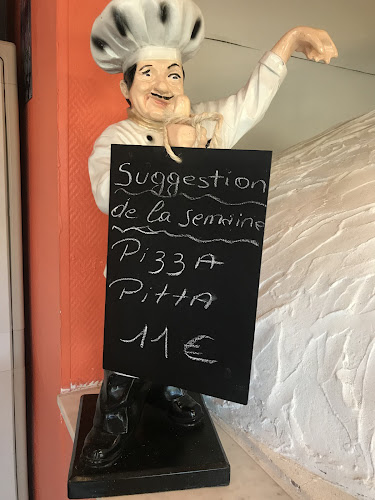 Suggestion
de la semaine
Pizza
Pitta
11 €